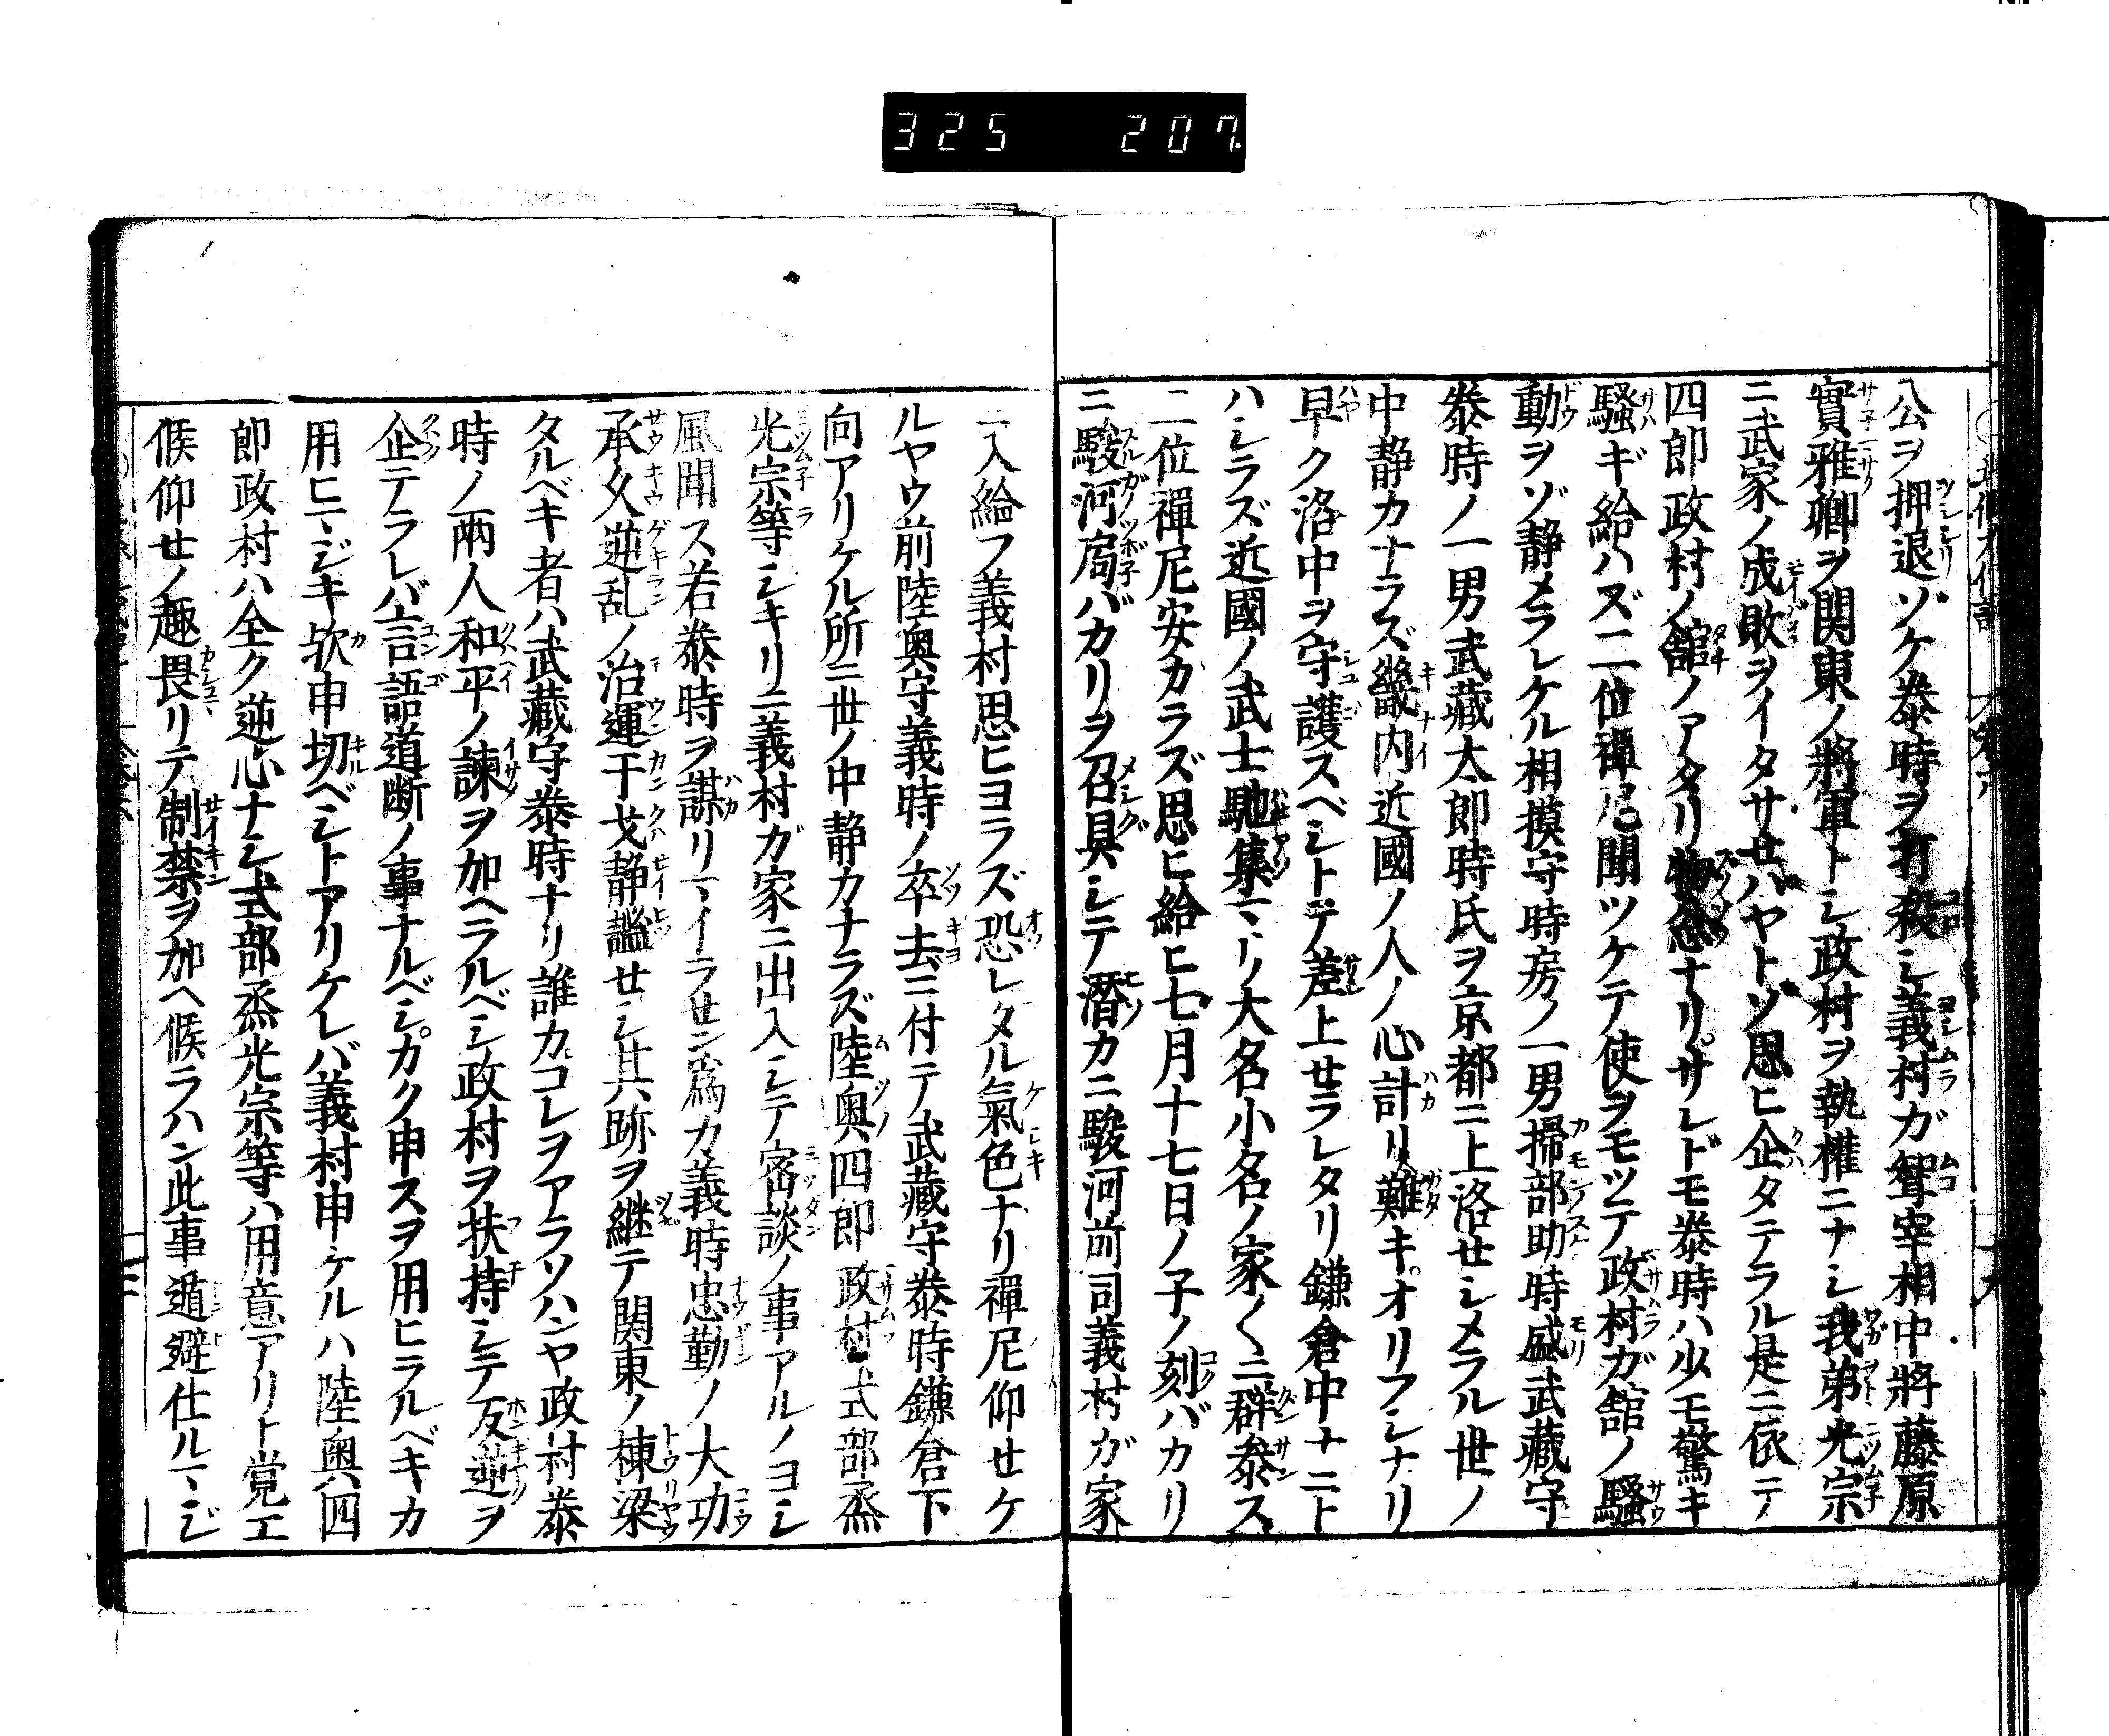 325 207
公ヲ押退ソケ泰時ヲ打殺シ義村ガ聟宰相中將藤原
實雅卿ヲ関東ノ將軍トシ政村ヲ執權ニナシ我弟光宗
ニ武家ノ成敗ヲイタサセバヤトゾ思ヒ企タテラル是ニ依テ
四郎政村ノ舘ノアタリ物忩ナリサレドモ泰時ハ少モ驚キ
騒ギ給ハズ二位禪尼聞ツケテ使ヲモツテ政村ガ舘ノ騒
動ヲゾ静メラレケル相摸守時房ノ一男掃部助時盛武藏守
泰時ノ一男武藏太郎時氏ヲ京都ニ上洛セシメラル世ノ
中静カナラズ畿内近國ノ人ノ心計リ難キオリフシナリ
早ク洛中ヲ守護スベシトテ差上セラレタリ鎌倉中ナニト
ハシラズ近國ノ武士馳集マリ大名小名ノ家〱ニ群参ス
二位禪尼安カラズ思ヒ給ヒ七月十七日ノ子ノ刻バカリ
ニ駿河局バカリヲ召具シテ潜カニ駿河前司義村ガ家
ニ入給フ義村思ヒヨラズ恐レタル氣色ナリ禪尼仰セケ
ルヤウ前陸奥守義時ノ卒去ニ付テ武藏守泰時鎌倉下
向アリケル所ニ世ノ中静カナラズ陸奥四郎政村式部烝
光宗等シキリニ義村ガ家ニ出入シテ密談ノ事アルノヨシ
風聞ス若泰時ヲ謀リマイラセン為カ義時忠勤ノ大功
承久逆乱ノ治運干戈静謐セシ其跡ヲ継テ関東ノ棟梁
タルベキ者ハ武藏守泰時ナリ誰カコレヲアラソハンヤ政村泰
時ノ兩人和平ノ諫ヲ加ヘラルベシ政村ヲ扶持シテ反逆ヲ
企テラレバ言語道断ノ事ナルベシカク申スヲ用ヒラルベキカ
用ヒマジキ欤申切ベシトアリケレバ義村申ケルハ陸奥四
郎政村ハ全ク逆心ナシ式部烝光宗等ハ用意アリト覚エ
候仰セノ趣畏リテ制禁ヲ加ヘ候ラハン此事遁避仕ルマジ